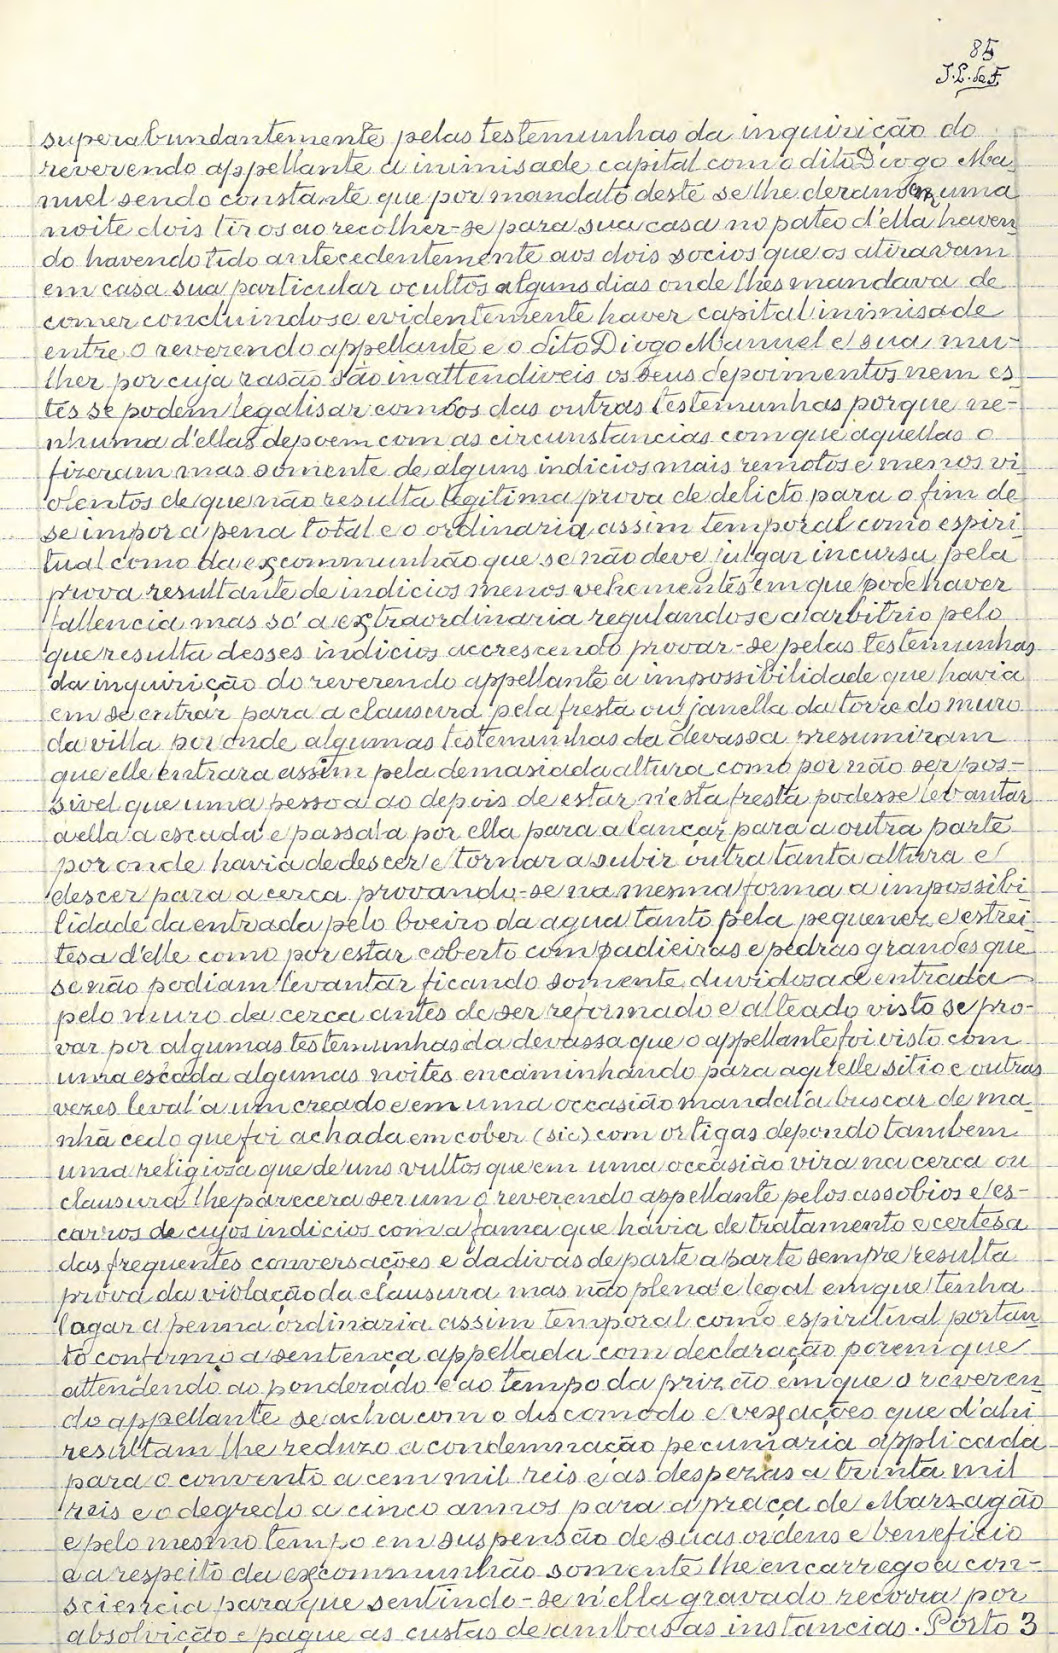 85
J. L. de F.
superabundantemente pelas testemunhas da inquirição do
reverendo appellante a inimisade capital com o dito Diogo Ma-
nuel sendo constante que por mandato deste se lhe deram em uma
noite dois tiros ao recolher-se para sua casa no pateo d'ella haven
do havendo tido antecedentemente aos dois socios que os atiravam
em casa sua particular ocultos alguns dias onde lhes mandava de
comer concluindose evidentemente haver capital inimisade
entre o reverendo appellante e o dito Diogo Manuel e sua mu-
lher por cuja rasão são inattendiveis os seus depoimentos nem es-
tes se podem legalisar com os das outras testemunhas porque ne-
nhuma d'ellas depoem com as circunstancias com que aquellas o
fizeram mas somente de alguns indicios mais remotos e menos vi-
olentos de que não resulta legitima prova de delicto para o fim de
se impor a pena total e o ordinaria assim temporal como espiri-
tual como da excommunhão que se não deve julgar incursa pela
prova resultante de indicios menos vehementes em que pode haver
fallencia mas só a extraordinaria regulandose a arbitrio pelo
que resulta desses indicios accrescendo provar-se pelas testemunhas
da inquirição do reverendo appellante a impossibilidade que havia
em se entrar para a clausura pela fresta ou janella da torre do muro
da villa por onde algumas testemunhas da devassa presumiram
que elle entrara assim pela demasiada altura como por não ser pos-
sivel que uma pessoa ao depois de estar n'esta fresta podesse levantar
a ella a escada e passala por ella para a lançar para a outra parte
por onde havia de descer e tornar a subir outra tanta altura e
descer para a cerca provando-se na mesma forma a impossibi-
lidade da entrada pelo boeiro da agua tanto pela pequenez e estrei-
tesa d'elle como por estar coberto com padieiras e pedras grandes que
se não podiam levantar ficando somente duvidosa a entrada
pelo muro da cerca antes de ser reformado e alteado visto se pro-
var por algumas testemunhas da devassa que o appellante foi visto com
uma escada algumas noites encaminhando para aquelle sitio e outras
vezes leval'a um creado e em uma occasião mandal'a buscar de ma-
nhã cedo que foi achada em cober (sic) com ortigas depondo tambem
uma religiosa que de uns vultos que em uma occasião vira na cerca ou
clausura lhe parecera ser um o reverendo appellante pelos assobios e es-
carros de cujos indicios com a fama que havia de tratamento e certesa
das frequentes conversações e dadivas de parte a parte sempre resulta
prova da violação da clausura mas não plena e legal em que tenha
logar a penna ordinaria assim temporal como espiritival portan
to confirmo a sentença appellada com declaração porem que
attendendo ao ponderado e ao tempo da prizão em que o reveren-
do appellante se acha com o discomodo e vexações que d'ahi
resultam lhe reduzo a condemnação pecuniaria applicada
para o convento a cem mil reis e ás despezas a trinta mil
reis e o degredo a cinco annos para a praça de Marzagão
e pelo mesmo tempo em suspensão de suas ordens e beneficio
e a respeito da excommunhão somente lhe encarrego a con-
sciencia para que sentindo-se n'ella gravado recorra por
absolvição e pague as custas de ambas as instancias. Porto 3